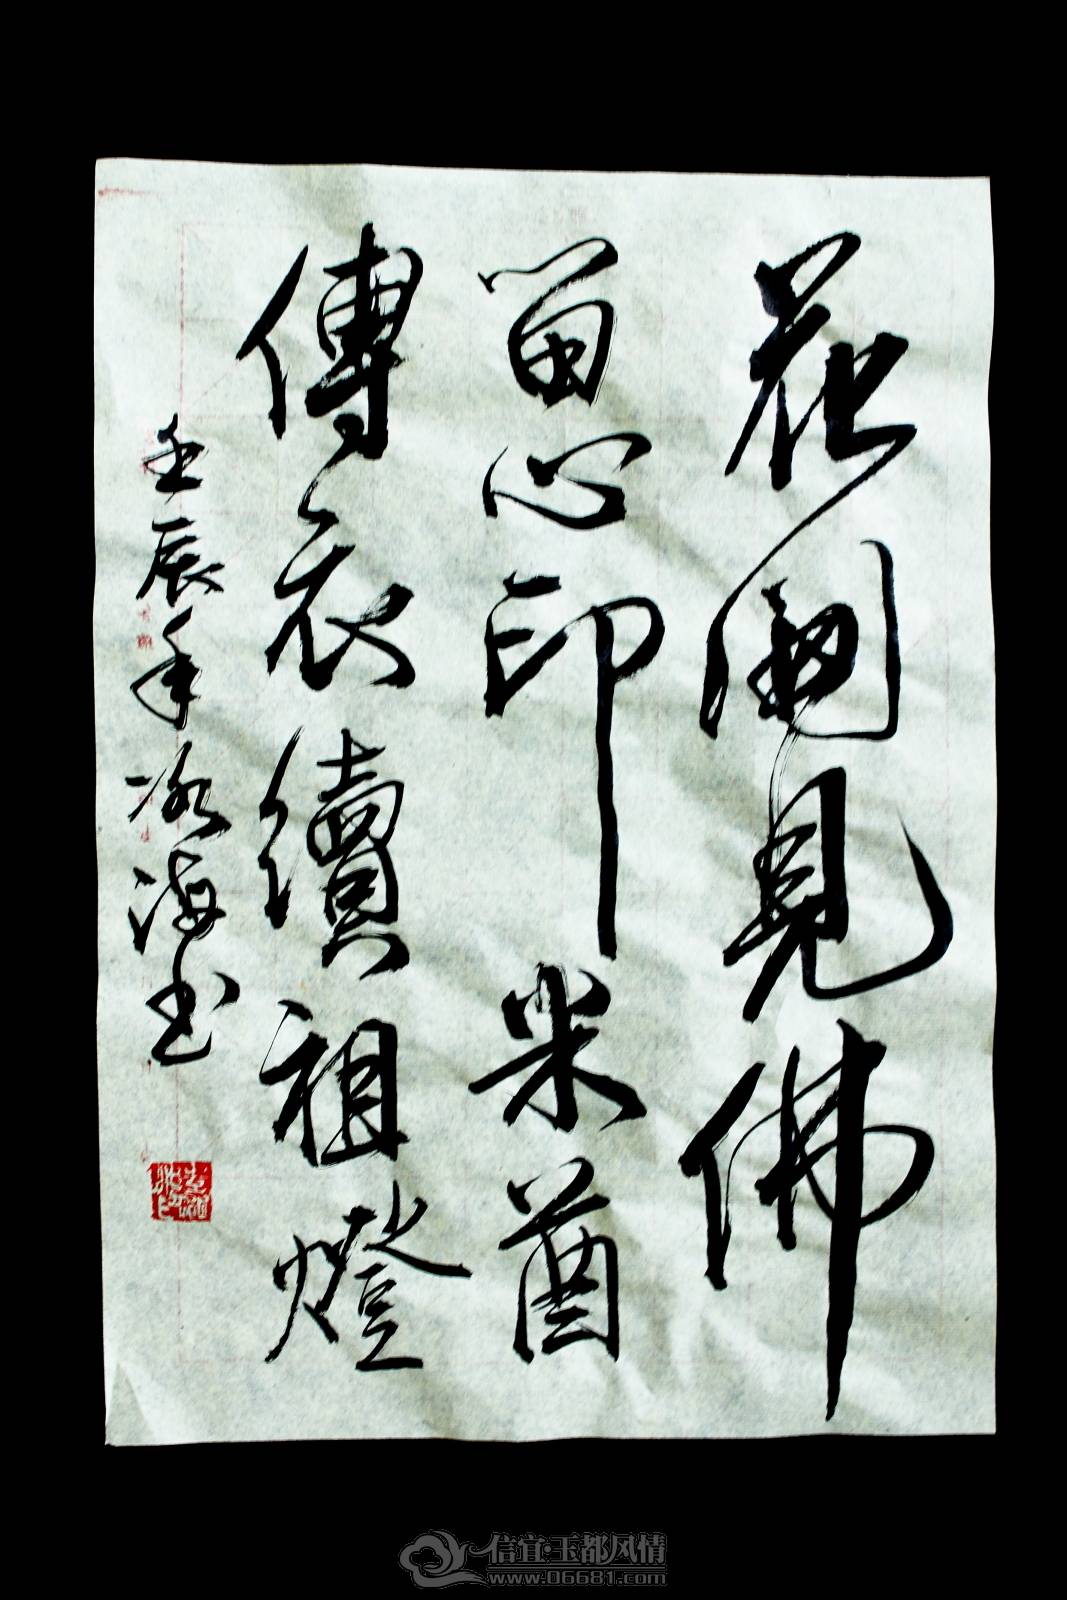 花開見佛
心印米酋
傳衣續祖燈
壬辰年冰海书
信宜·玉都风情
www.06681.com